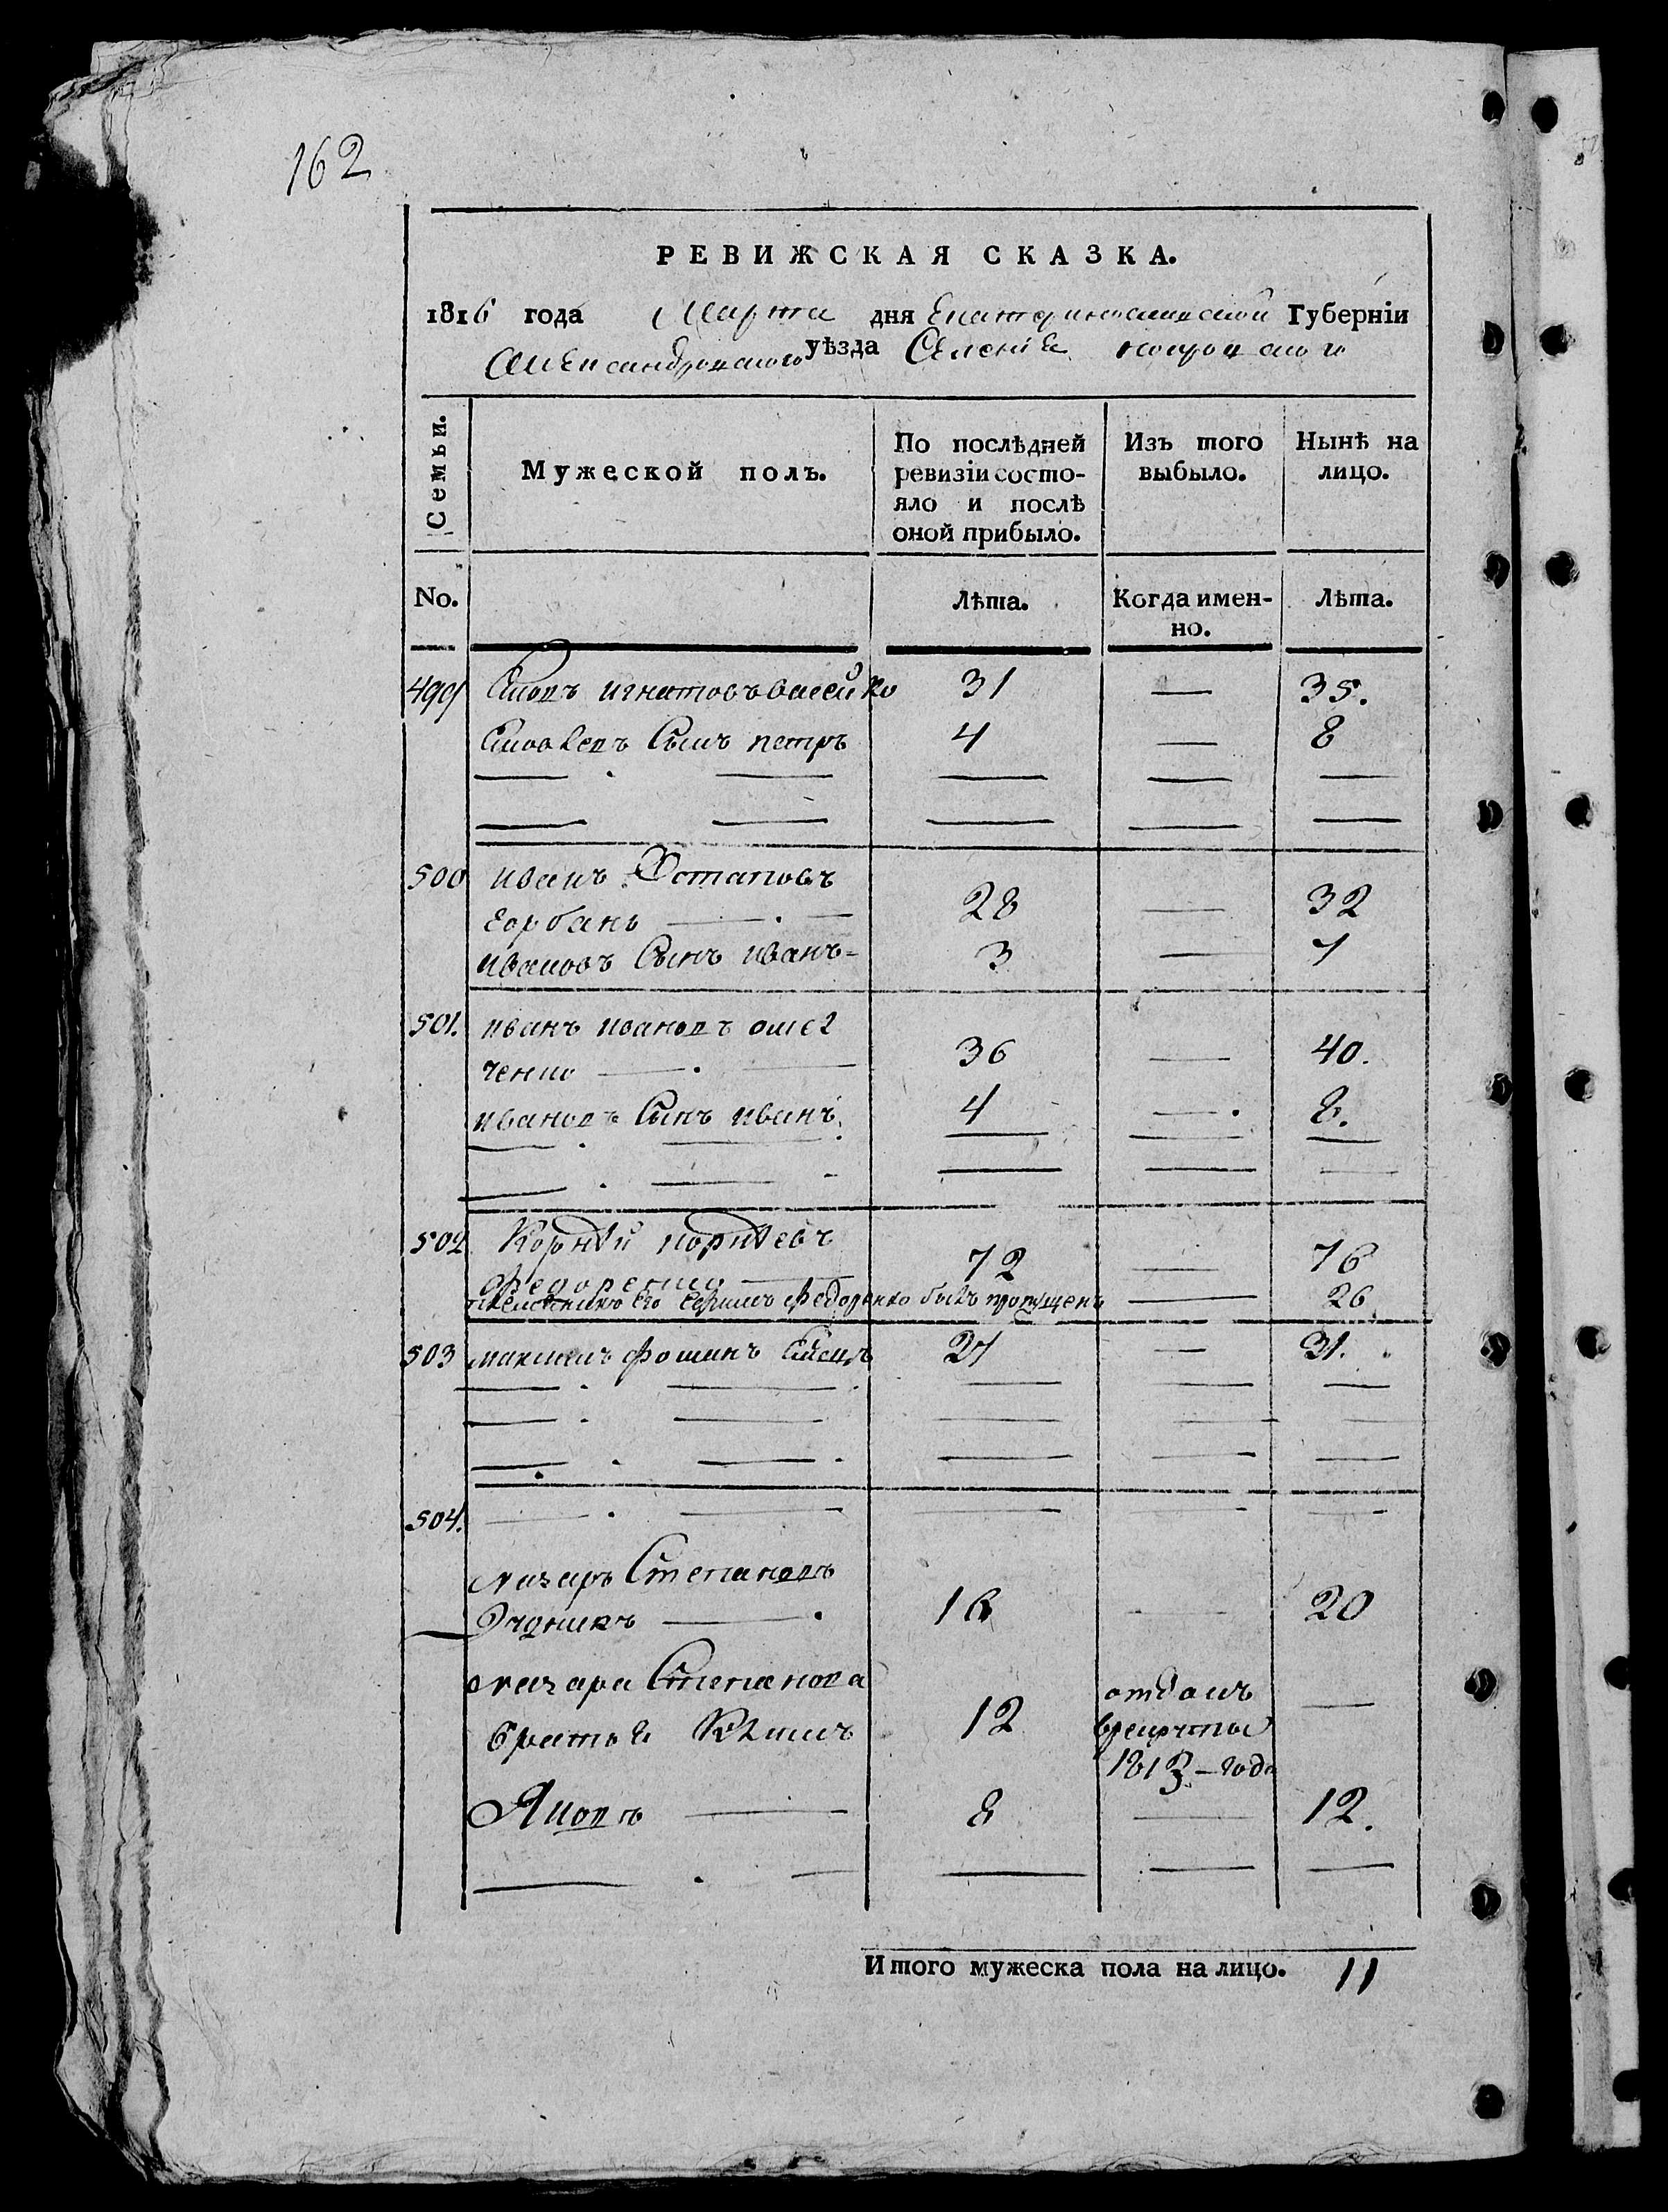 162
РЕВИЖСКАЯ СКАЗКА.
1816 года Марта дня Екатеринославской Губерніи
Александровскаго уѣзда Селенія
Семьи.
Мужеской полъ.
По послѣдней ревизіи состо-
яло и послѣ оной прибыло.
Изъ того выбыло.
Нынѣ на лицо.
No.
Лѣта.
Когда имен-
но.
Лѣта.
499 игнатовъ 31 — 35.
сынъ петръ 4 — 8
500 иванъ Остаповъ
горбань — 28 — 32
ивановъ Сынъ иванъ 3 — 7
501. иванъ ивановъ
ченко — 36 — 40.
ивановъ Сынъ иванъ 4 — 8.
502 Корнѣй корнѣевъ
федоренко — 72 — 76
племянникъ его федоренко былъ пропущенъ — 26
503 максимъ фоминъ 27 — 31.
504.
лазарь Степановъ
— 16 — 20
лазаря Степанова
братья 12 отданъ —
врекруты
1813 – года
Яковъ — 8 — 12.
Итого мужеска пола на лицо. 11